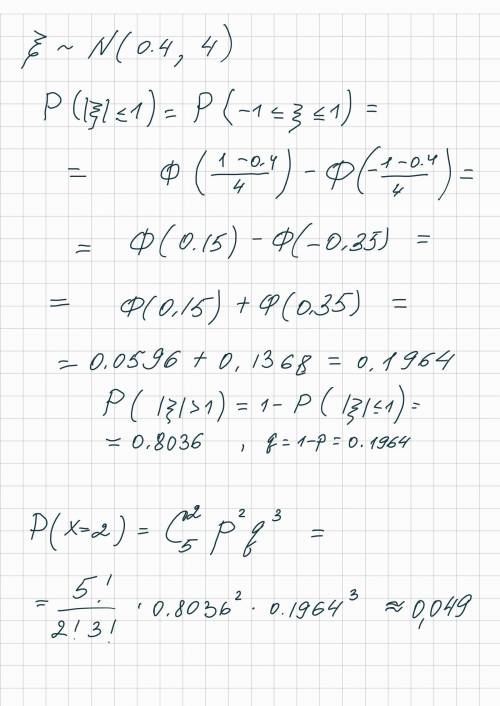 ξ ~ N(0.4, 4)
P(|ξ| ≤ 1) = P(-1 ≤ ξ ≤ 1) =
= Ф((1-0.4)/4) - Ф((-1-0.4)/4) =
= Ф(0.15) - Ф(-0.35) =
= Ф(0.15) + Ф(0.35) =
= 0.0596 + 0,1368 = 0,1964
P(|ξ| > 1) = 1 - P(|ξ| ≤ 1) =
= 0.8036 , q = 1-p = 0.1964
P(X=2) = C₅² p² q³ =
= 5!/(2! 3!) · 0.8036² · 0.1964³ ≈ 0,049